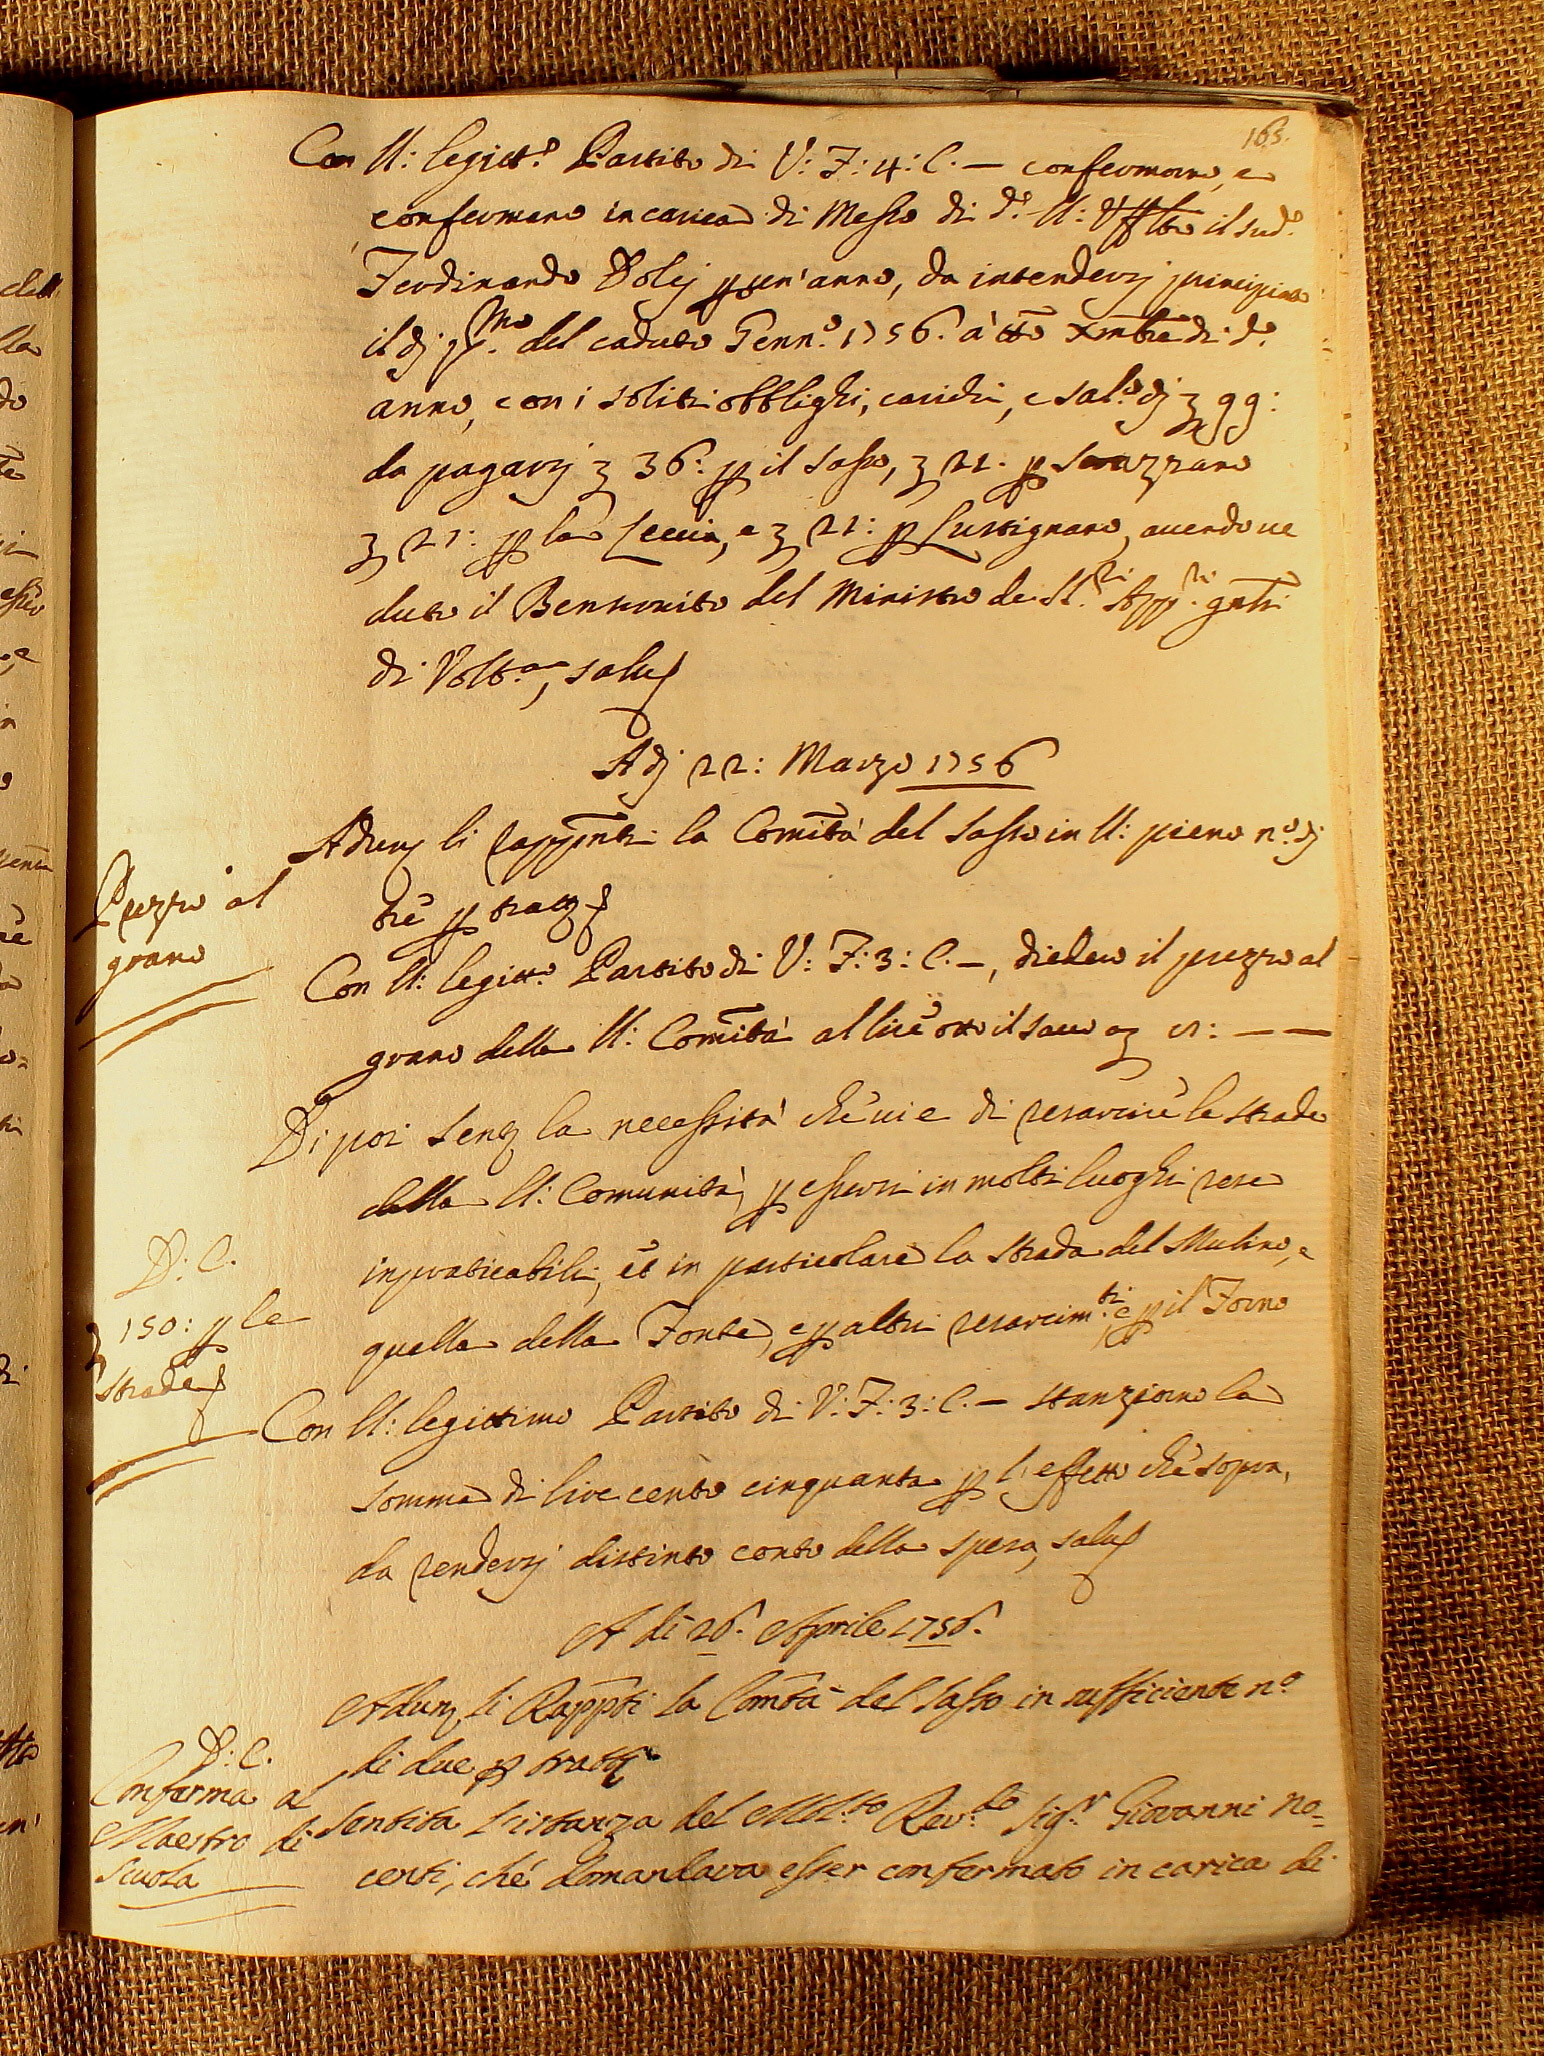 163.
Con U: legitt.º Partito di V: F: 4: C. — confermorno, e
confermano in carica di Messo di d.º U: il sud.º
Ferdinando p un' anno, da intendersj principiato
il dj p.mo del caduto Genn.º 1756. à tto Xmbre di d.º
anno, con i soliti obblighi, carichi, e sal.º dj 99:
da pagarsj 36: p il Sasso, 21. p Serazzano
21: p la Leccia, e 21: p Lustignano, avendo ve
duto il Benservito del Ministro de SS.ri App.ti gnli
di Volt.a, salu
Adj 22: Marzo 1756
Adunj li rappntti la Comità del Sasso in U: pieno n.º dj
trè p tratt
Prezzo al
grano
Con U: legitt.º Partito di V: F: 3: C. —, diedero il prezzo al
grano della U: Comità a lire otto il sacco — —
Di poi Sent la necessità chè vi è di resarcire le strade
della U: Comunità, p essersi in molti luoghi rese
inpraticabili, et in particolare la strada del Mulino, e
quella della Fonte, e p altri resarcim.ti e p il Forno
D: C.
150: p le
Strade
Con U: legittimo Partito di V: F: 3: C. — stanziorno la
somma di lire cento cinquanta p l'effetto chè sopra,
da rendersj distinto conto della spesa, salu
A di 26. Aprile 1756.
Adun li Rapppti la Comtà del Sasso in sufficiente n.º
di due p tratt
D: C.
Conferma al
Maestro di
Scuola
Sentita l'istanza del Mol.to Rev.do Sig.r Giovanni No=
centi, ché domandava esser confermato in carica di